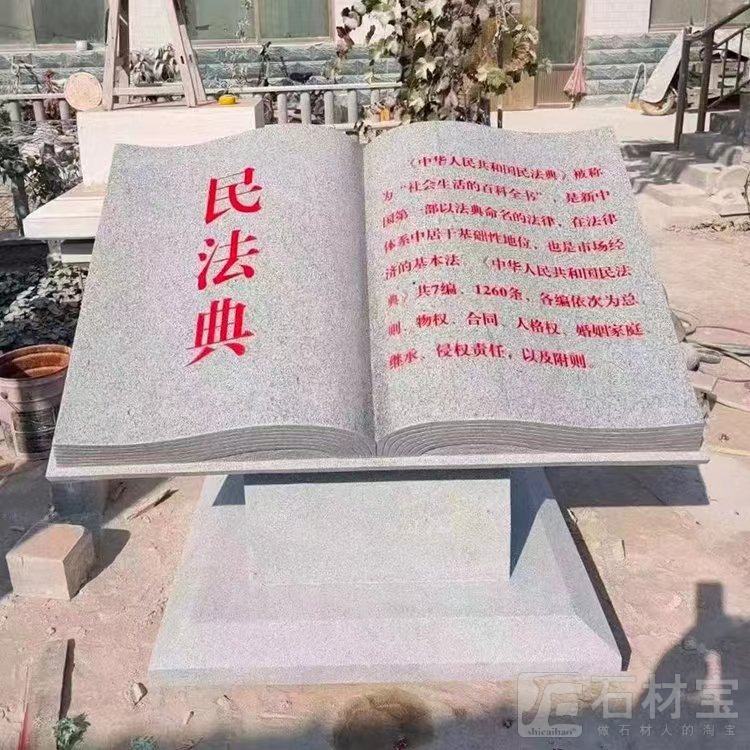 民法典
《中华人民共和国民法典》被称
为“社会生活的百科全书”，是新中
国第一部以法典命名的法律，在法律
体系中居于基础性地位，也是市场经
济的基本法。《中华人民共和国民法
典》共7编、1260条，各编依次为总
则、物权、合同、人格权、婚姻家庭
继承、侵权责任，以及附则。
石材宝
shicaibao
做石材人的淘宝